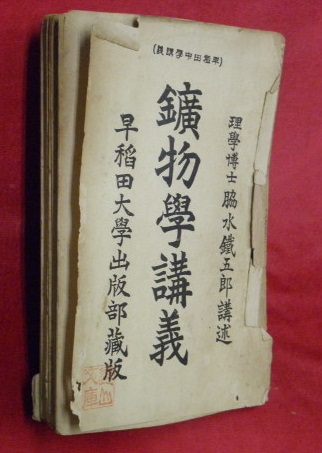 (早稲田中學講義)
理學博士 脇水鐵五郎 講述
鑛物學講義
早稻田大學出版部藏版
文庫